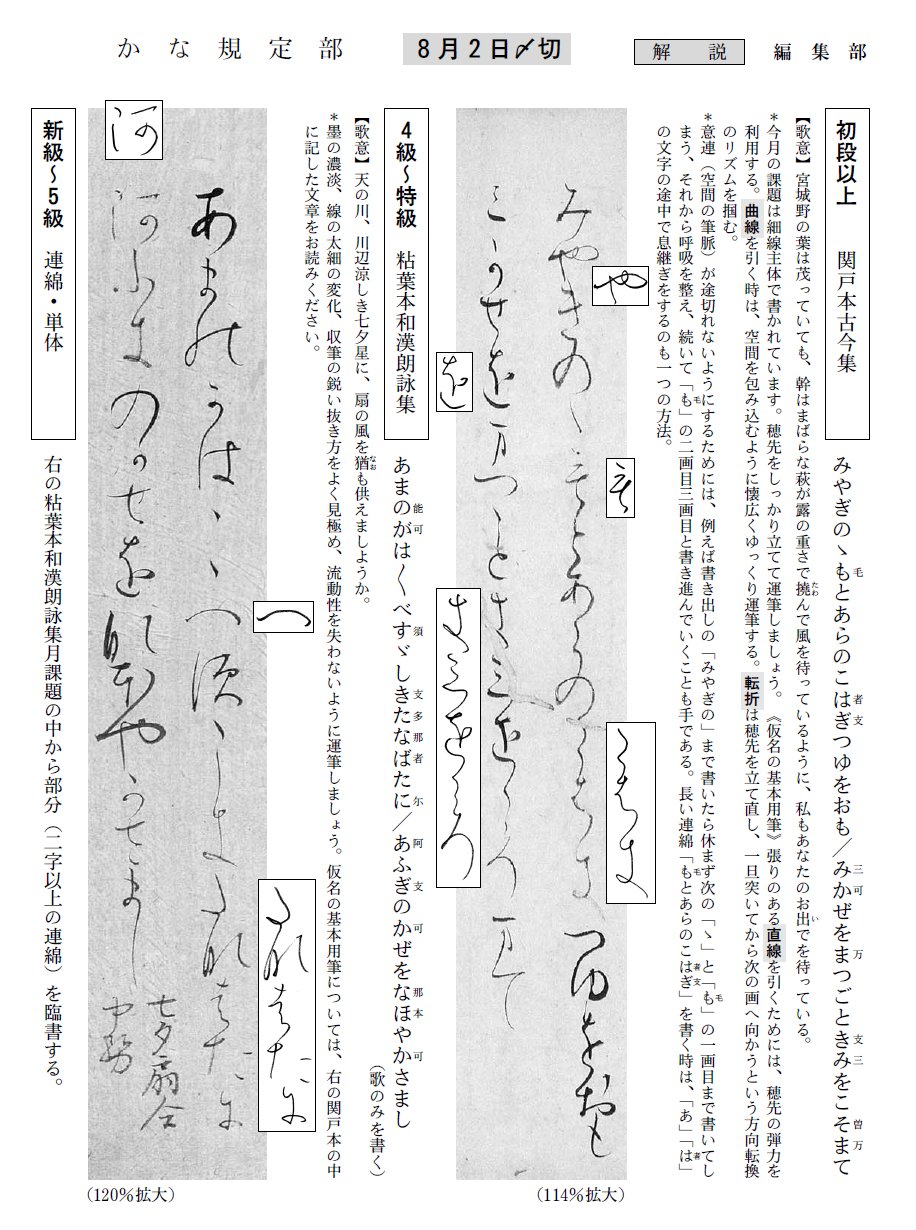 かな規定部
8月2日〆切
解説
編集部
初段以上　関戸本古今集
みやぎのゝもとあらのこはぎつゆをおも／みかぜをまつごときみをこそまて
毛
者支
三可
万
支三
曽万
【歌意】宮城野の葉は茂っていても、幹はまばらな萩が露の重さで撓んで風を待っているように、私もあなたのお出でを待っている。
たわ
い
＊今月の課題は細線主体で書かれています。穂先をしっかり立てて運筆しましょう。《仮名の基本用筆》張りのある直線を引くためには、穂先の弾力を
利用する。曲線を引く時は、空間を包み込むように懐広くゆっくり運筆する。転折は穂先を立て直し、一旦突いてから次の画へ向かうという方向転換
のリズムを掴む。
＊意連（空間の筆脈）が途切れないようにするためには、例えば書き出しの「みやぎの」まで書いたら休まず次の「ゝ」と「も」の一画目まで書いてし
毛
まう、それから呼吸を整え、続いて「も」の二画目三画目と書き進んでいくことも手である。長い連綿「もとあらのこはぎ」を書く時は、「あ」「は」
毛
毛
者支
者
の文字の途中で息継ぎをするのも一つの方法。
（114％拡大）
4級～特級　粘葉本和漢朗詠集
あまのがは〱べすゞしきたなばたに／あふぎのかぜをなほやかさまし
能可
須
支多那者
尓
阿
支
可
那本
可
（歌のみを書く）
【歌意】天の川、川辺涼しき七夕星に、扇の風を猶も供えましょうか。
なお
＊墨の濃淡、線の太細の変化、収筆の鋭い抜き方をよく見極め、流動性を失わないように運筆しましょう。仮名の基本用筆については、右の関戸本の中
に記した文章をお読みください。
（120％拡大）
新級～5級　連綿・単体
右の粘葉本和漢朗詠集月課題の中から部分（二字以上の連綿）を臨書する。